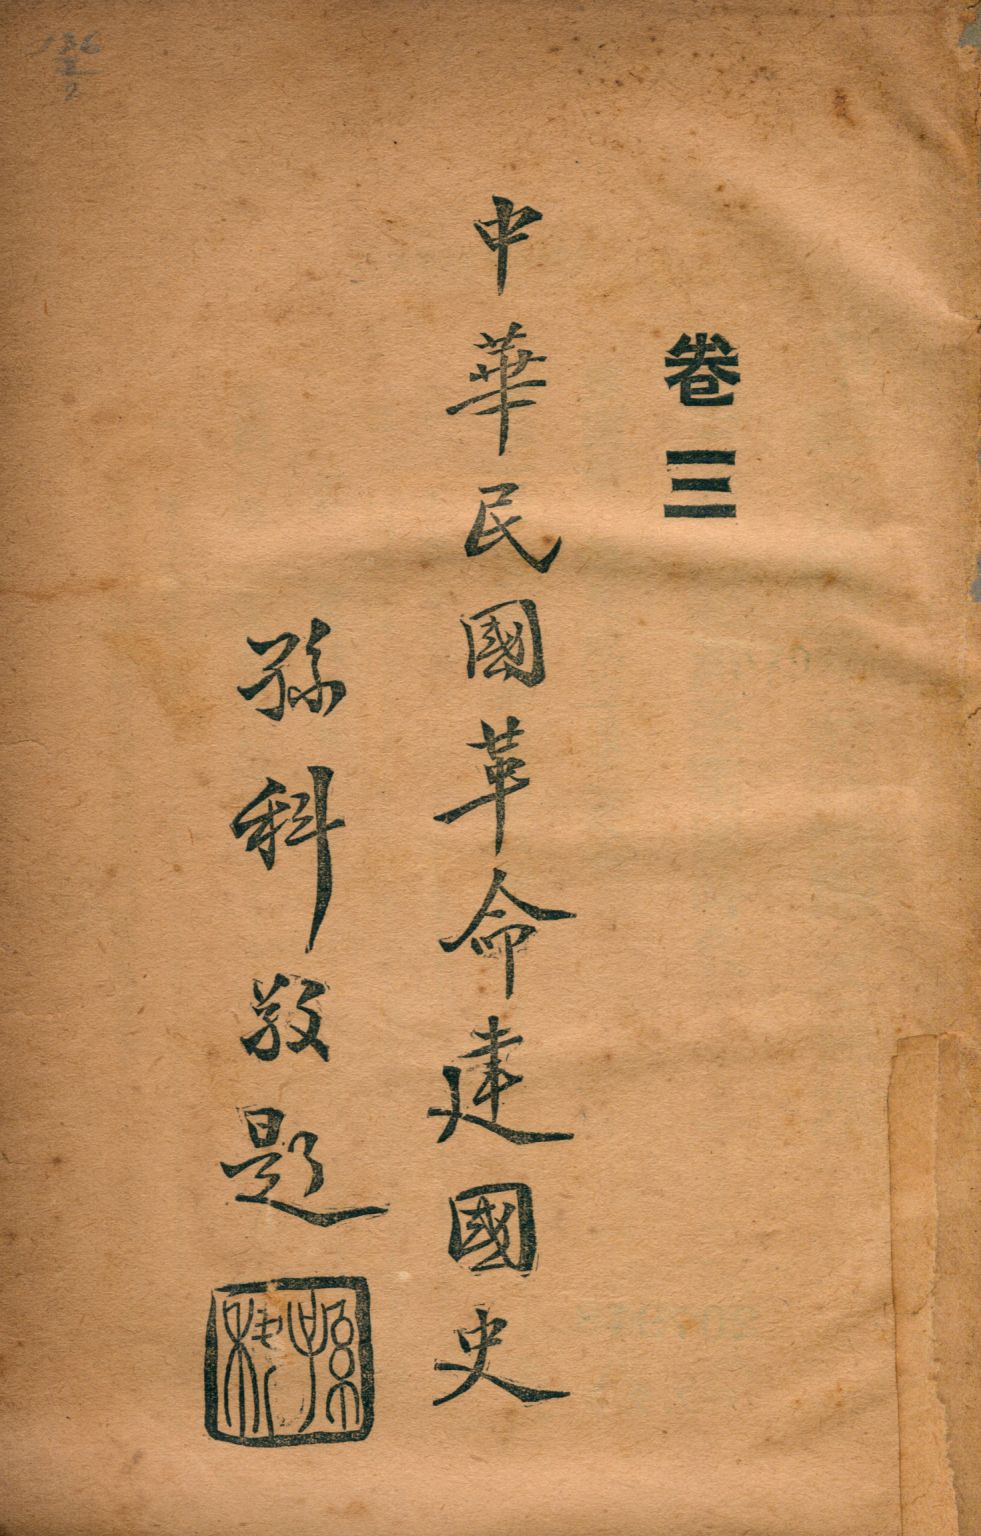 卷三
中華民國革命建國史
孫科敬題
孫科